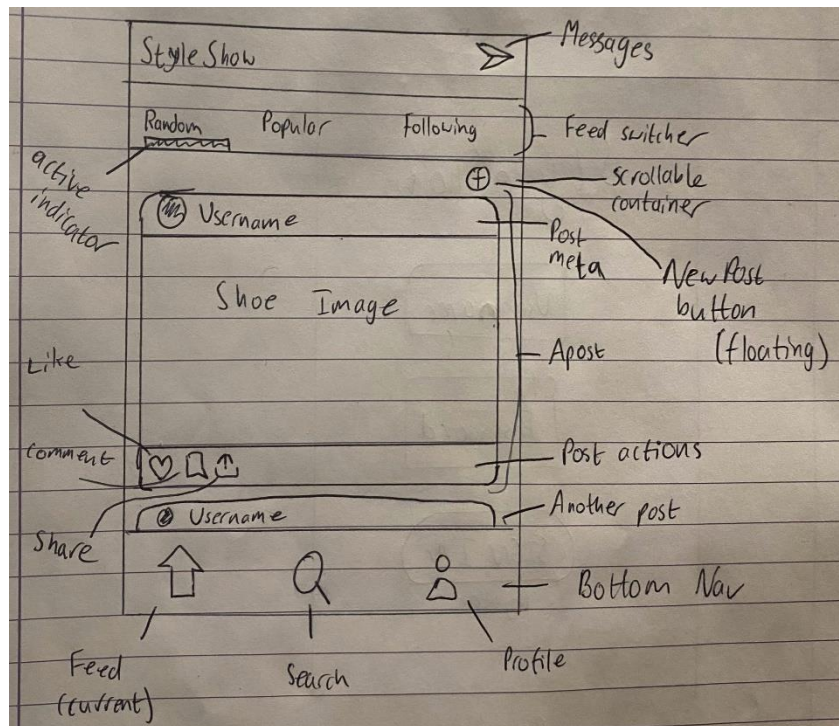 StyleShow
Messages
Random Popular Following
Feed switcher
active
indicator
scrollable
container
Username
Post
meta
New Post
button
(floating)
Shoe Image
A post
Like
Comment
Post actions
Share
Username
Another post
Bottom Nav
Feed
(current)
Search
Profile